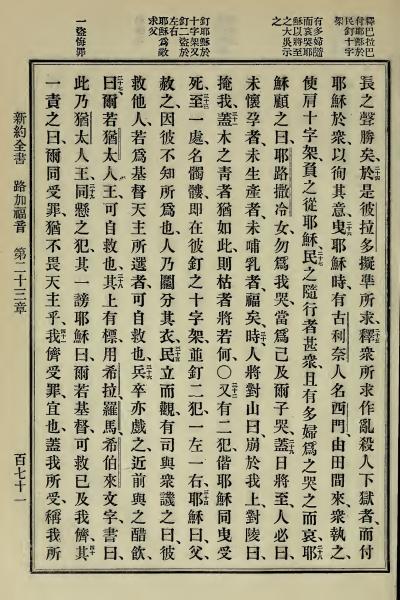 釋巴拉巴
付耶穌於
民釘十字
架
有多婦隨
而哀哭耶
穌以將至
之大災示
之
釘耶穌於
十字架又
釘二盜於
左右
耶穌為敵
求父
一盜悔罪
長之聲勝矣、於是彼拉多擬準所求、釋衆所求作亂殺人下獄者、而付
耶穌於衆以徇其意、曳耶穌時有古利奈人名西門由田間來衆執之、
使肩十字架負之從耶穌、民之隨行者甚衆、且有多婦爲之哭之而哀、耶
穌顧之曰、耶路撒冷女勿爲我哭當爲己及爾子哭、蓋日將至人必曰、
未懷孕者、未生產者、未哺乳者、福矣、時人將對山曰、崩於我上、對陵曰、
掩我、蓋木之靑者猶如此、則枯者將若何○又有二犯、偕耶穌同曳受
死、至一處名髑髏、即在彼釘之十字架、並釘二犯一左一右、耶穌曰、父
赦之、因彼不知所爲也、人乃鬮分其衣、民立而觀、有司與衆譏之曰、彼
救他人、若爲基督天主所選者、可自救也、兵卒亦戲之、近前與之醋飲、
曰爾若猶太人王、可自救也、其上有標、用希拉、羅馬、希伯來文字書曰、
此乃猶太人王、同懸之犯、其一謗耶穌曰、爾若基督、可救己及我儕、其
一責之曰、爾同受罪、猶不畏天主乎、我儕受罪、宜也、蓋我所受、稱我所
新約全書 路加福音 第二十三章 百七十一